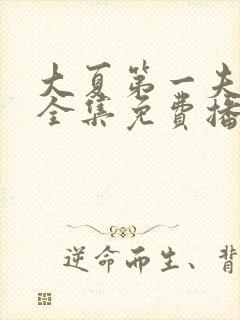 大夏第一夫
全集免费播
逆命而生、背